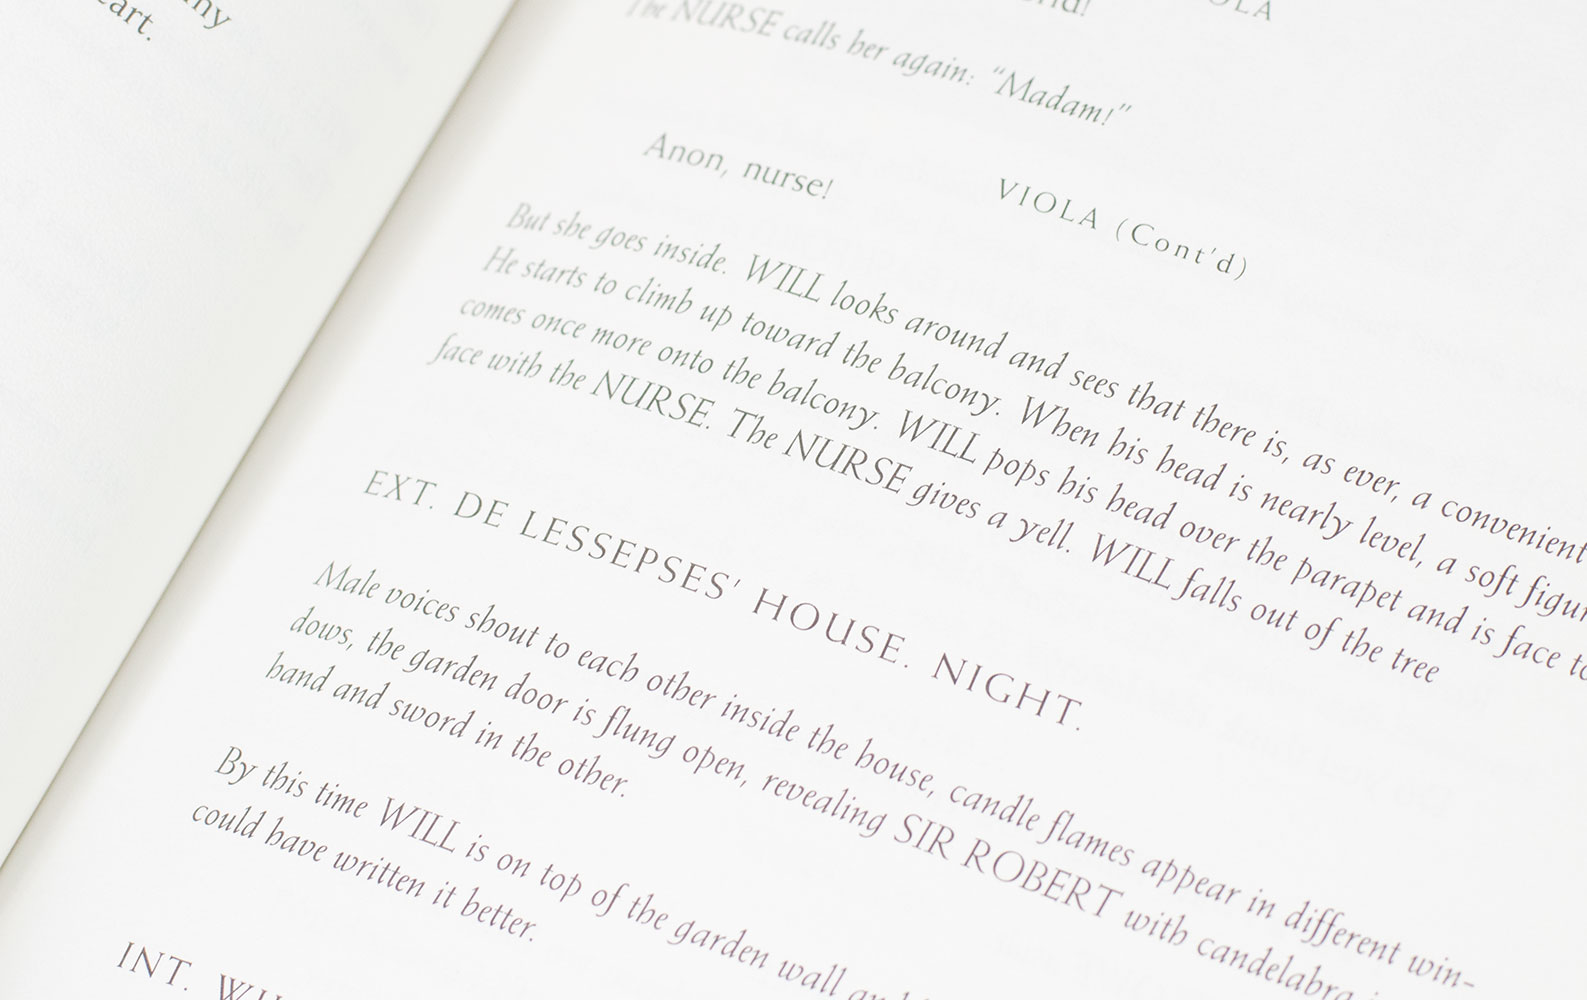 my
eart.
OLA
The NURSE calls her again: “Madam!”
VIOLA (Cont'd)
Anon, nurse!
But she goes inside. WILL looks around and sees that there is, as ever, a convenient
He starts to climb up toward the balcony. When his head is nearly level, a soft figur
comes once more onto the balcony. WILL pops his head over the parapet and is face to
face with the NURSE. The NURSE gives a yell. WILL falls out of the tree
EXT. DE LESSEPSES' HOUSE. NIGHT.
Male voices shout to each other inside the house, candle flames appear in different win-
dows, the garden door is flung open, revealing SIR ROBERT with candelabra
hand and sword in the other.
By this time WILL is on top of the garden wall and
could have written it better.
INT.